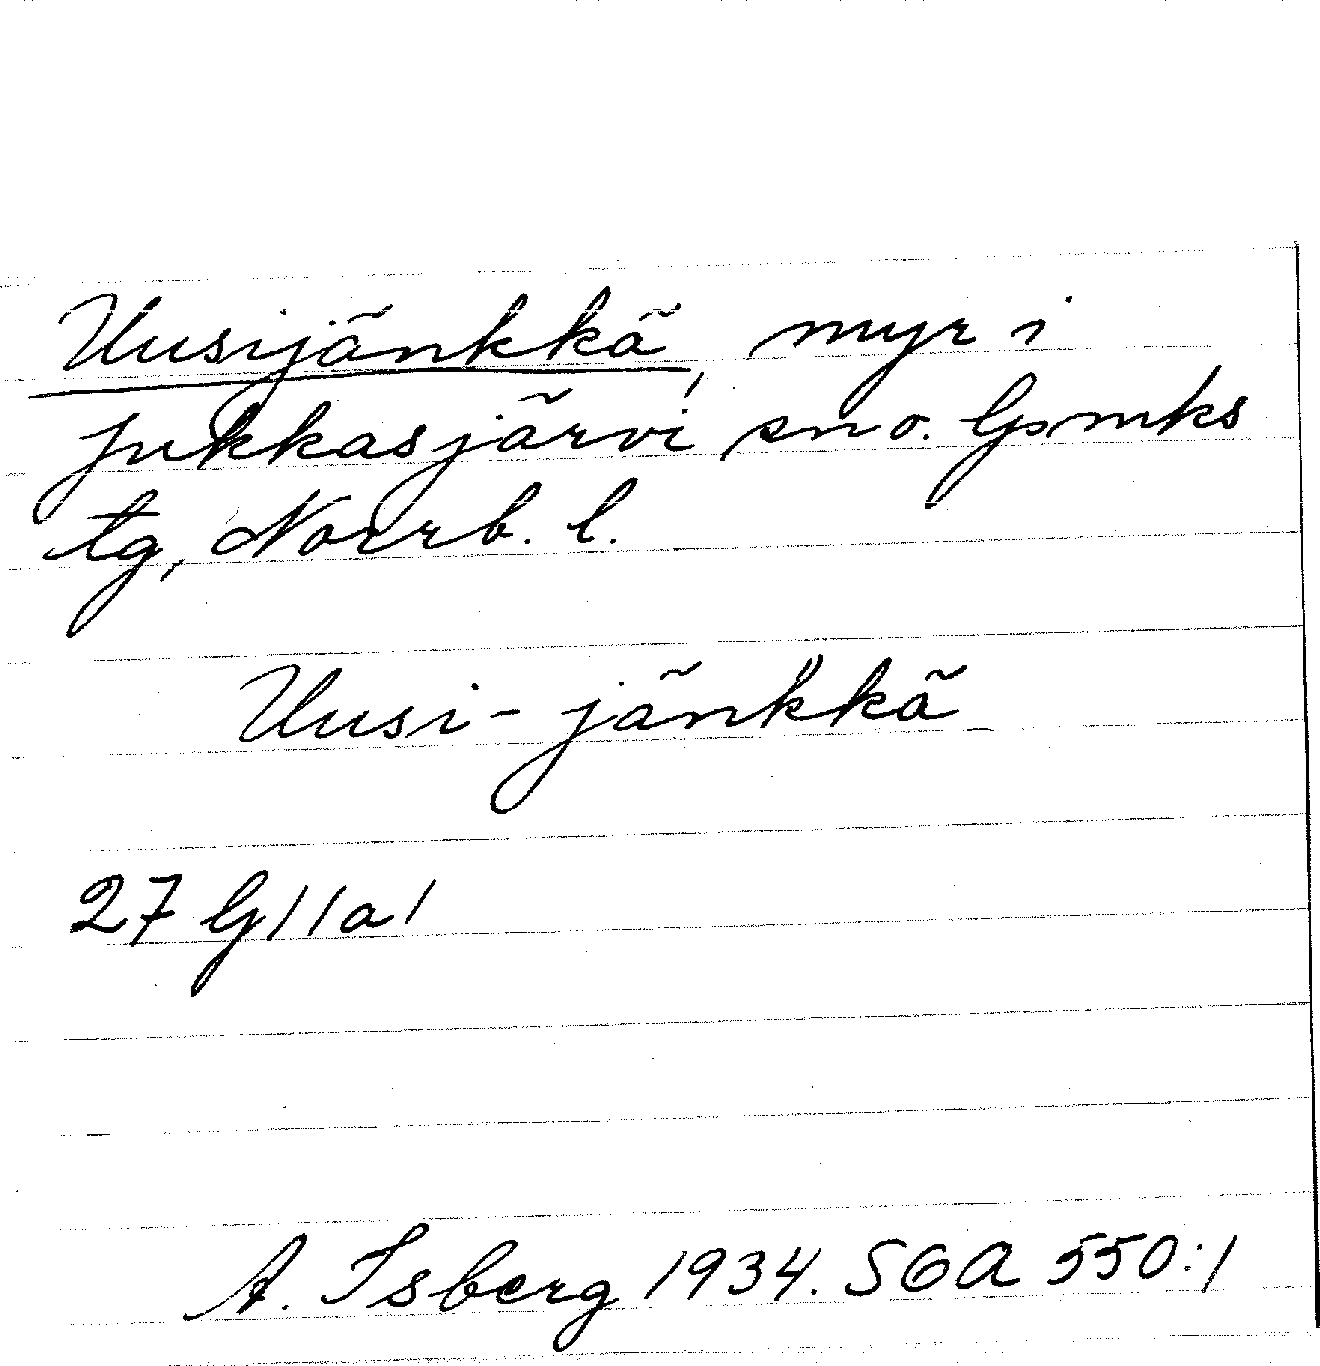 Uusijänkkä, myr i
Jukkasjärvi sn o. lpmks
tg, Norrb. l.
Uusi-jänkkä
27 G 11 a 1
A. Isberg 1934. SOA 550:1